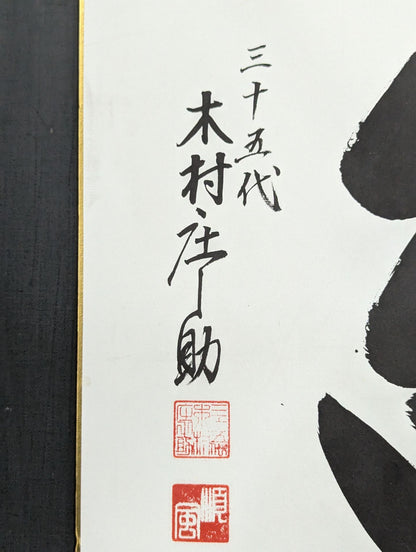 三十五代
木村庄之助
順風